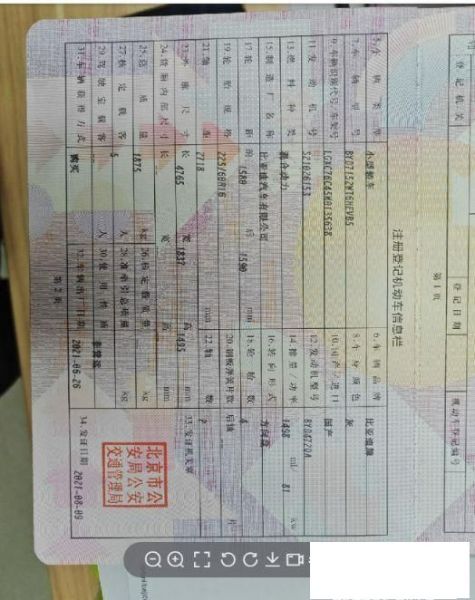 登记机关 登记日期 机动车登记编号
第1页
注册登记机动车信息栏
5.车辆类型 小型轿车 6.车辆品牌 比亚迪牌
7.车辆型号 BYD7152WT6HEVB5 8.车身颜色 灰
9.车辆识别代号/车架号 LGXC76C45M0135638 10.国产/进口 国产
11.发动机号 S21026153 12.发动机型号 BYD472QA
13.燃料种类 混合动力 14.排量/功率 1498 ml/ 81 kw
15.制造厂名称 比亚迪汽车有限公司 16.转向形式 方向盘
17.轮距 前 1580 后 1590 mm 18.轮胎数 4
19.轮胎规格 225/60R16 20.钢板弹簧片数 后轴 片
21.轴距 2718 mm 22.轴数 2
23.外廓尺寸 长 4765 宽 1837 高 1495 mm 33.发证机关章
24.货厢内部尺寸 长 宽 高 mm
25.总质量 1875 kg 26.核定载质量 kg
27.核定载客 5 人 28.准牵引总质量 kg
29.驾驶室载客 人 30.使用性质
31.车辆获得方式 购买 32.车辆出厂日期 2021-06-26 34.发证日期 2021-08-09
北京市公
安局公安
交通管理局
第2页